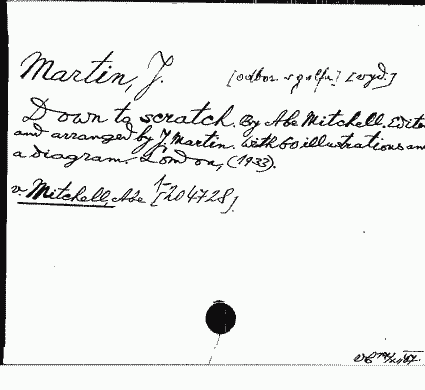 Martin, J. [odbor. v golfu] [wyd.]
Down to scratch. By Abe Mitchell. Edite
and arranged by J. Martin. With 60 illustrations an
a diagram. London, (1933).
v. Mitchell, Abe [204728].